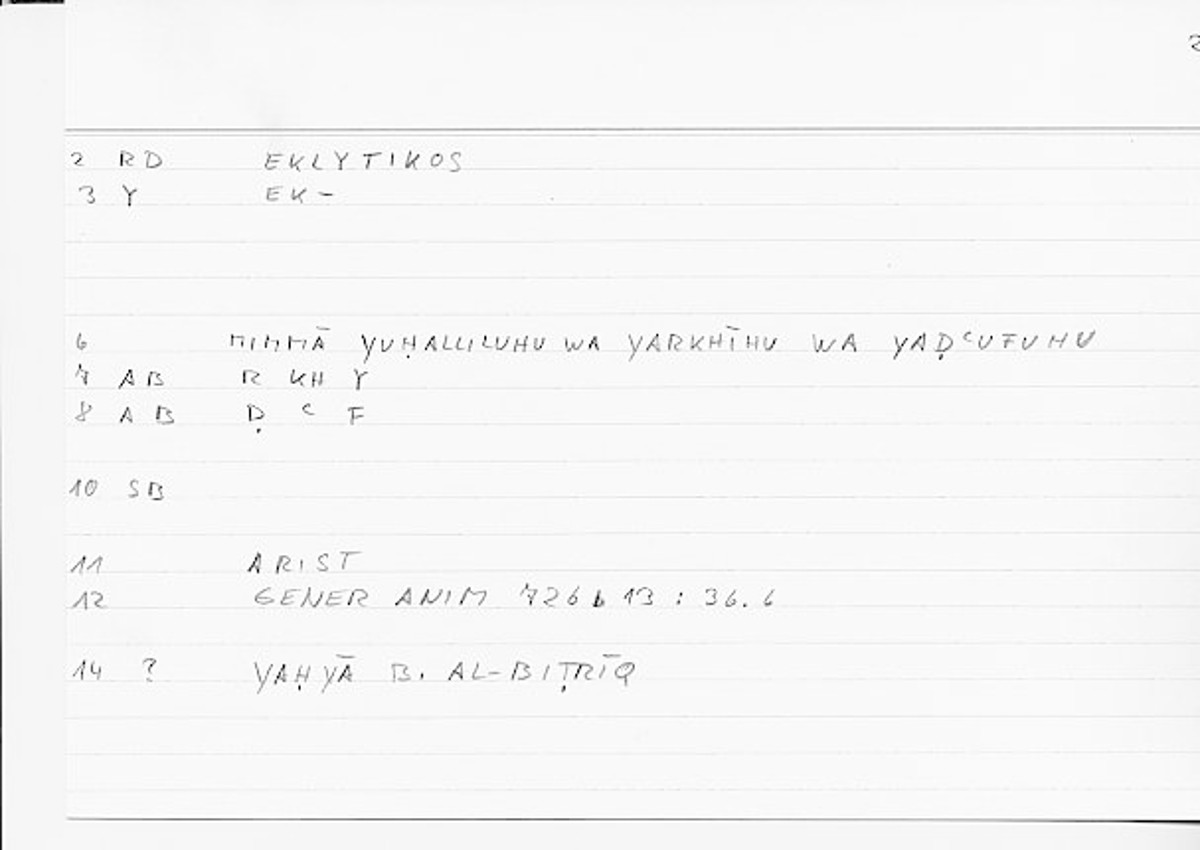 2
2 RD EKLYTIKOS
3 Y EK-
6 MIMMĀ YUḤALLILUHU WA YARKHĪHU WA YAḌʿUFUHU
7 AB R KH Y
8 AB Ḍ ʿ F
10 SB
11 ARIST
12 GENER ANIM 726b13 : 36.6
14 ? YAḤYĀ B. AL-BIṬRĪQ